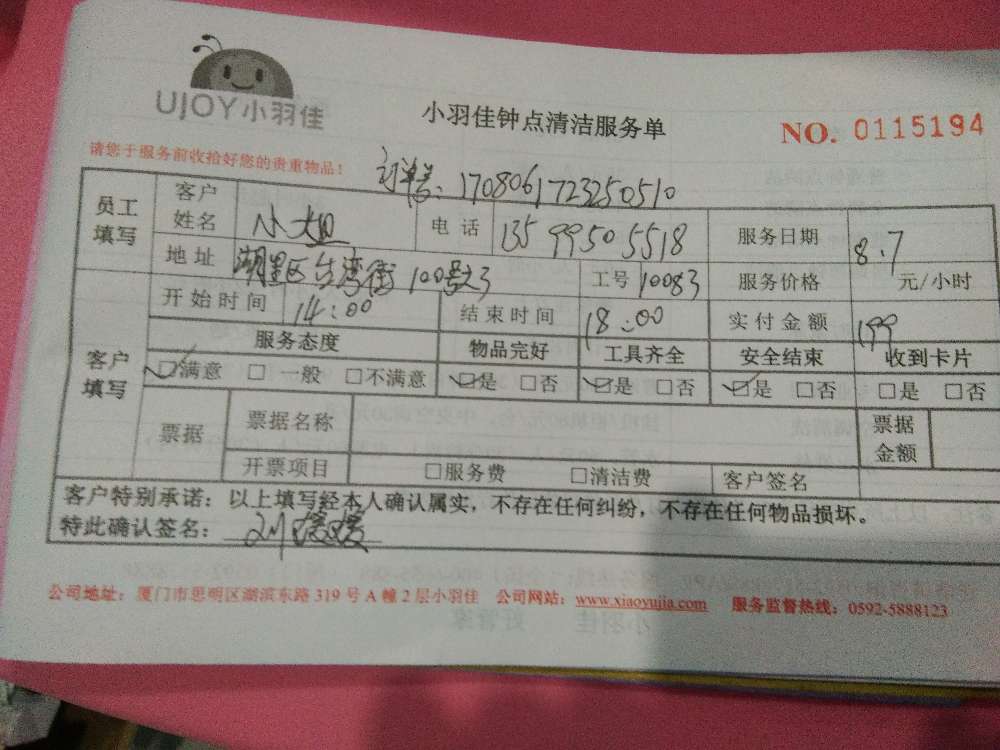 UJOY小羽佳
小羽佳钟点清洁服务单
NO. 0115194
请您于服务前收拾好您的贵重物品！
订单号：170806172325050510
员工填写 客户姓名 小姐 电话 13599505518 服务日期 8.7
地址 湖里区台湾街100号之3 工号 10083 服务价格 元/小时
开始时间 14:00 结束时间 18:00 实付金额 199
客户填写 服务态度 物品完好 工具齐全 安全结束 收到卡片
☑满意 □一般 □不满意 ☑是 □否 ☑是 □否 ☑是 □否 □是 □否
票据 票据名称 票据金额
开票项目 □服务费 □清洁费 客户签名
客户特别承诺：以上填写经本人确认属实，不存在任何纠纷，不存在任何物品损坏。
特此确认签名：
公司地址：厦门市思明区湖滨东路319号A幢2层小羽佳 公司网站：www.xiaoyujia.com 服务监督热线：0592-5888123